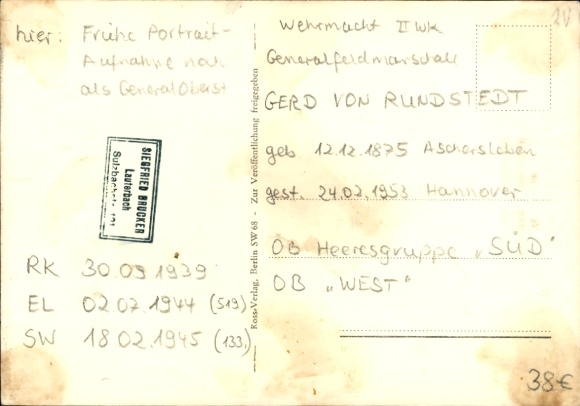 hier: Frühe Portrait-
Aufnahme noch
als GeneralOberst
SIEGFRIED BRUCKER
Lauterbach
Sulzbachstr. 101
RK 30.09.1939
EL 02.07.1944 (519)
SW 18.02.1945 (133.)
Ross-Verlag, Berlin SW 68 - Zur Veröffentlichung freigegeben
2V
Wehrmacht II WK
Generalfeldmarschall
GERD VON RUNDSTEDT
geb 12.12.1875 Aschersleben
gest. 24.02.1953 Hannover
OB Heeresgruppe „SÜD"
OB „WEST"
38€